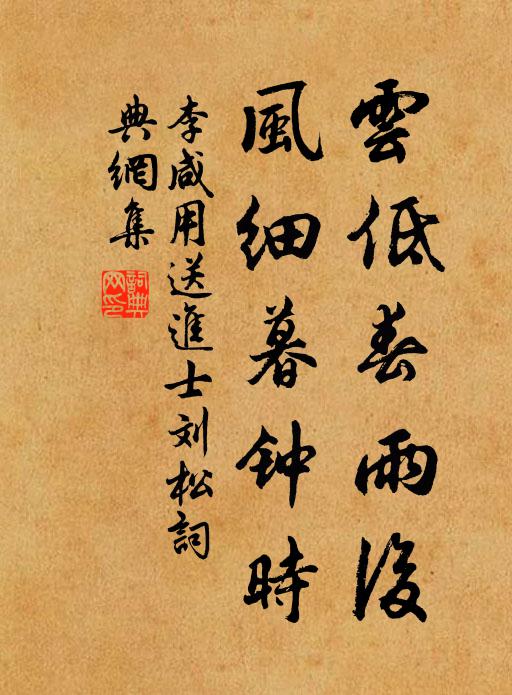 雲低春雨後
風细暮钟時
李咸用送進士刘松詞
典網集
詞典
网印